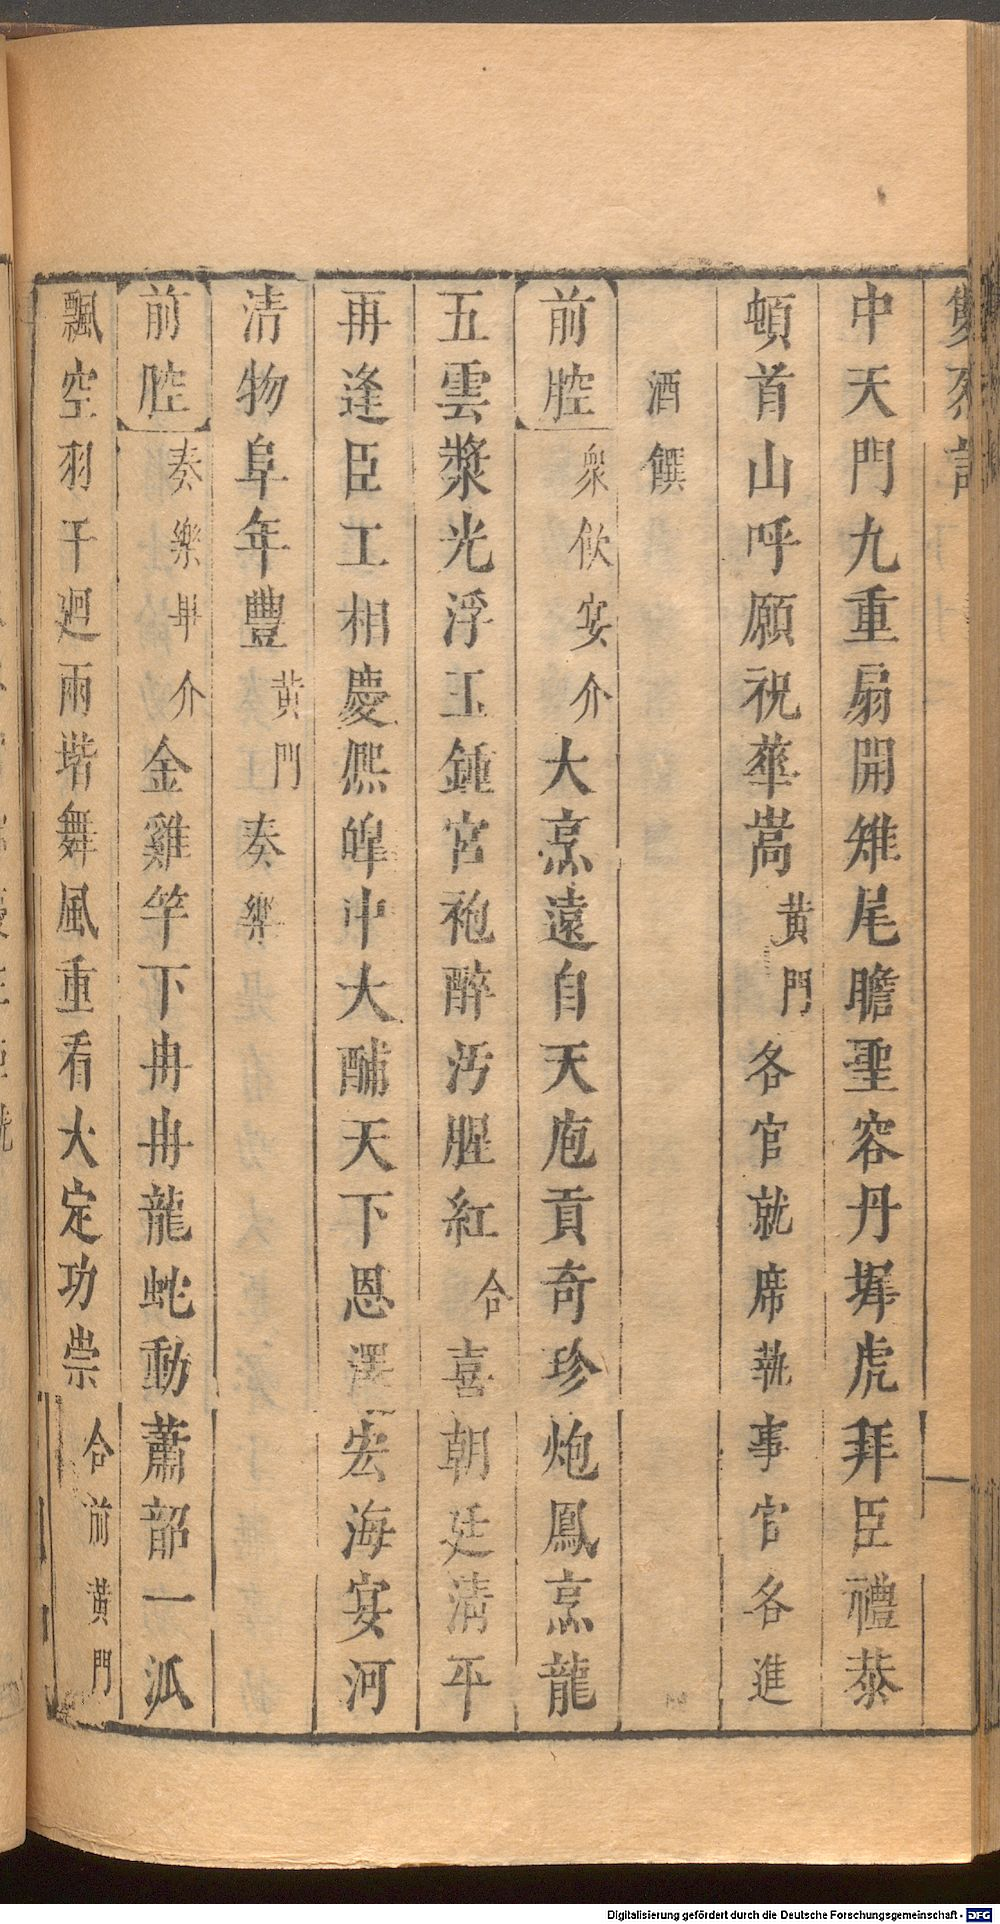 中天門九重扇開雉尾瞻聖容丹墀虎拜臣禮恭
頓首山呼願祝華嵩黃門各官就席執事官各進
酒饌
前腔衆飲宴介大烹遠自天庖貢奇珍炮鳳烹龍
五雲漿光浮玉鍾宮袍醉汚腥紅合喜朝廷清平
再逢臣工相慶熈皥中大酺天下恩澤宏海宴河
清物阜年豐黃門奏樂
前腔奏樂畢介金雞竿下冉冉龍蛇動蕭韶一派
飄空羽干廻兩堦舞風重看大定功崇合前黃門
Digitalisierung gefördert durch die Deutsche Forschungsgemeinschaft - DFG